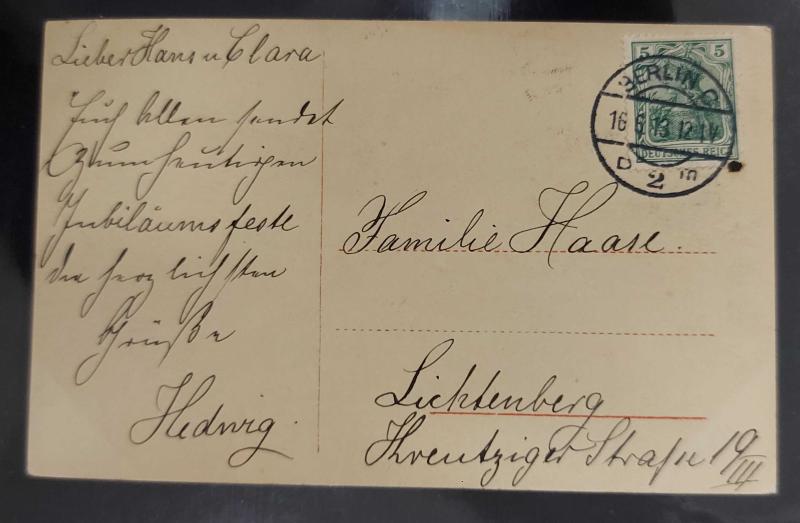 Lieber Hans u Clara
Euch Allen sendet
Zum heutigen
Jubiläumsfeste
die herzlichsten
Grüße
Hedwig.
5 5
DEUTSCHES REICH
BERLIN C
16 6 13 12 1 V
2
Familie Haase.
Lichtenberg
Kreutziger Straße 19/III